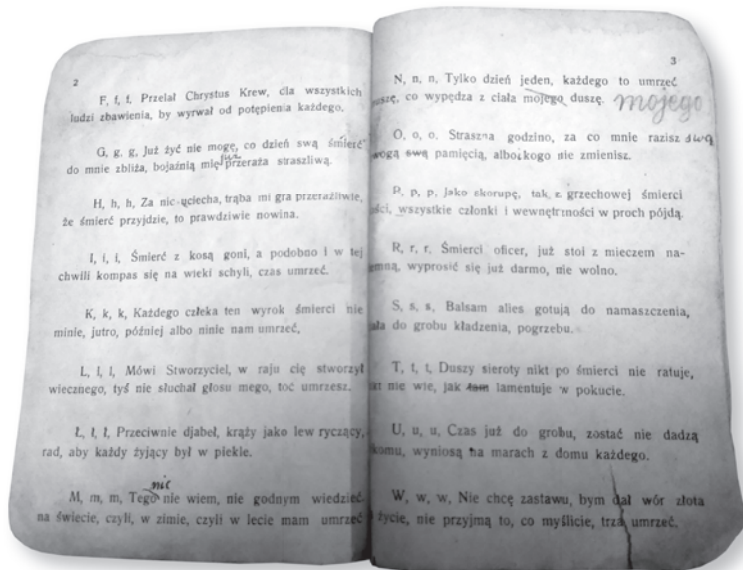 2
F, f, f, Przelał Chrystus Krew, dla wszystkich
ludzi zbawienia, by wyrwał od potępienia każdego.
G, g, g, Już żyć nie mogę, co dzień swą śmierć
do mnie zbliża, bojaźnią mię przeraża straszliwą.
H, h, h, Za nic uciecha, trąba mi gra przeraźliwie,
że śmierć przyjdzie, to prawdziwie nowina.
I, i, i, Śmierć z kosą goni, a podobno i w tej
chwili kompas się na wieki schyli, czas umrzeć.
K, k, k, Każdego człeka ten wyrok śmierci nie
minie, jutro, później albo ninie nam umrzeć,
L, l, l, Mówi Stworzyciel, w raju cię stworzył
wiecznego, tyś nie słuchał głosu mego, toć umrzesz.
Ł, ł, ł, Przeciwnie djabeł, krąży jako lew ryczący,
rad, aby każdy żyjący był w piekle.
nic
M, m, m, Tego nie wiem, nie godnym wiedzieć
na świecie, czyli, w zimie, czyli w lecie mam umrzeć
3
N, n, n, Tylko dzień jeden, każdego to umrzeć
co wypędza z ciała mojego duszę. mojego
O, o, o, Straszna godzino, za co mnie razisz swą
swą pamięcią, albo kogo nie zmienisz.
P, p, p, Jako skorupę, tak z grzechowej śmierci
wszystkie członki i wewnętrzności w proch pójdą.
R, r, r, Śmierci oficer, już stoi z mieczem na-
wyprosić się już darmo, nie wolno.
S, s, s, Balsam alies gotują do namaszczenia,
do grobu kładzenia, pogrzebu.
T, t, t, Duszy sieroty nikt po śmierci nie ratuje,
nie wie, jak tam lamentuje w pokucie.
U, u, u, Czas już do grobu, zostać nie dadzą
wyniosą na marach z domu każdego.
W, w, w, Nie chcę zastawu, bym dał wór złota
życie, nie przyjmą to, co myślicie, trza umrzeć.